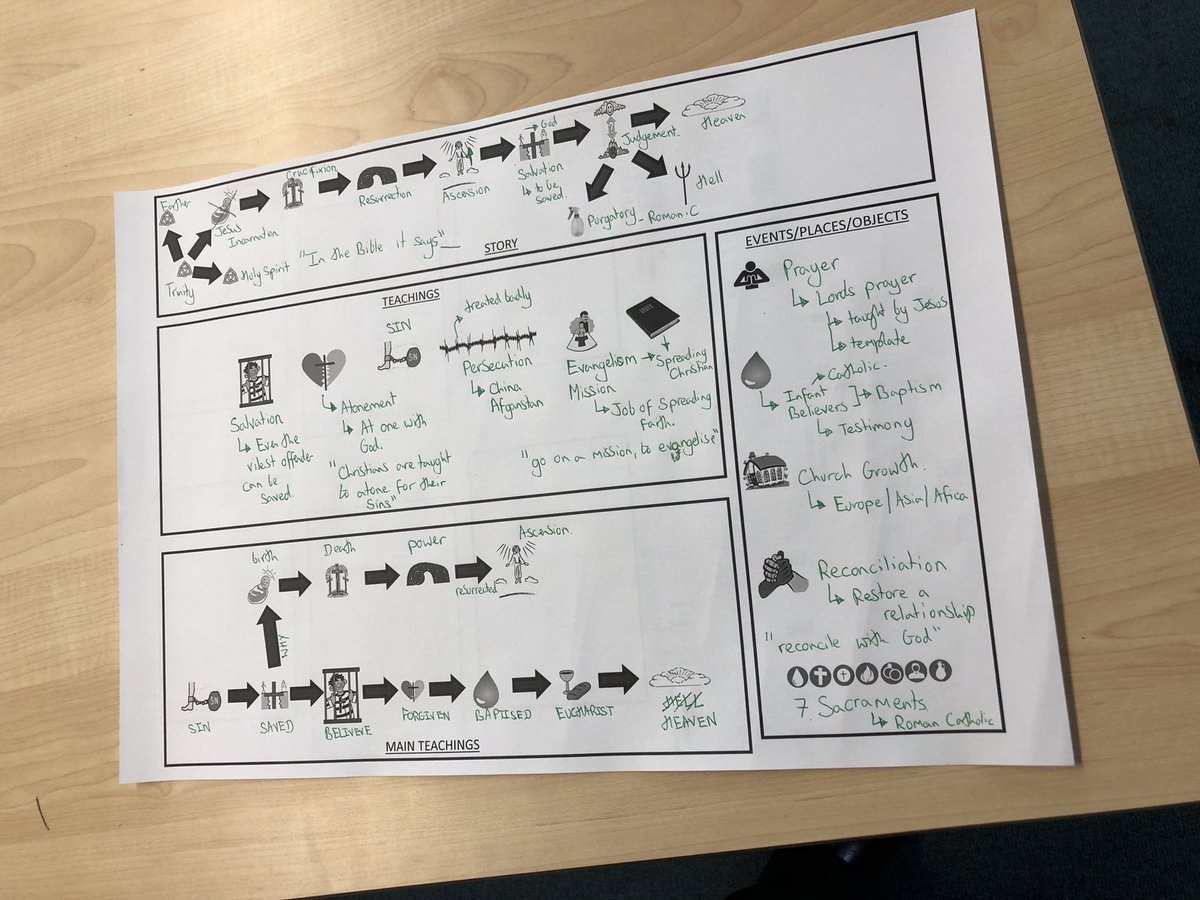 Father
Jesus
Incarnation
Trinity
Holy Spirit
Crucifixion
Resurrection
Ascension
God
Salvation
to be
saved.
Judgement.
Heaven
Hell
Purgatory - Roman.C
"In the Bible it says"
STORY
TEACHINGS
Salvation
Even the
vilest offender
can be
saved.
Atonement
At one with
God.
"Christians are taught
to atone for their
sins"
SIN
SIN
treated badly
Persecution
China
Afganstan
Evangelism
Spreading
Christian
Mission
Job of Spreading
Faith.
"go on a mission, to evangelise"
EVENTS/PLACES/OBJECTS
Prayer
Lords prayer
taught by Jesus
template
Catholic.
Infant
Believers
Baptism
Testimony
Church Growth.
Europe/Asia/Africa
Reconciliation
Restore a
relationship
"reconcile with God"
7 Sacraments
Roman Catholic
birth
Death
power
resurrected
Ascension.
WHY
SIN
SAVED
BELIVEVE
FORGIVEN
BAPTISED
EUCHARIST
HELL
HEAVEN
MAIN TEACHINGS